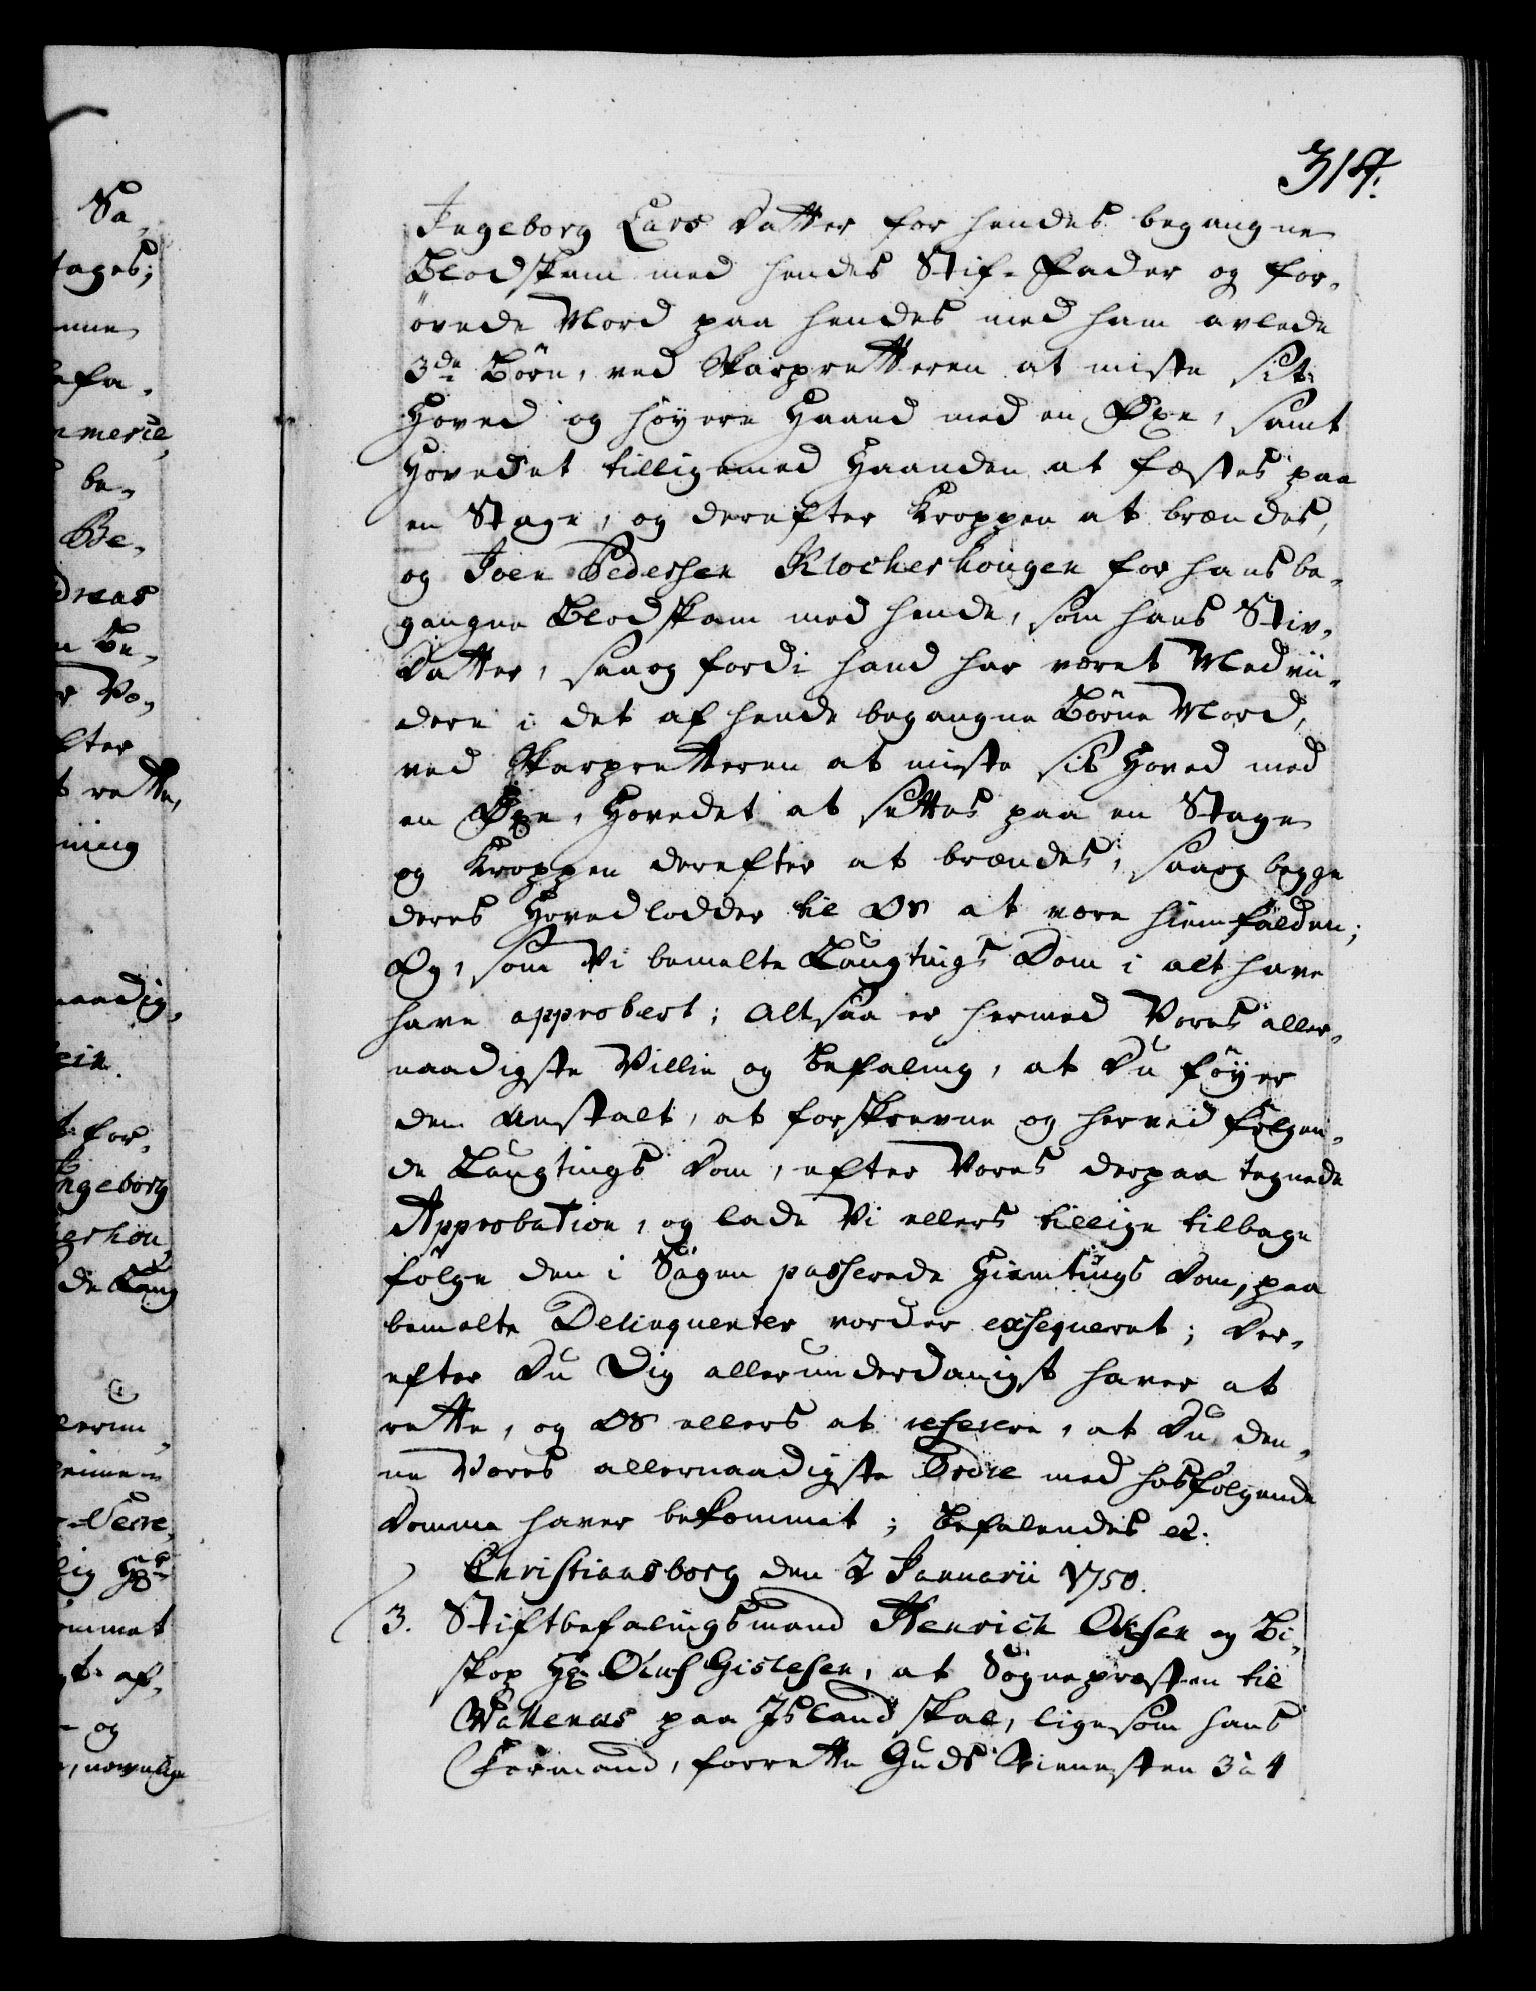 314.
Ingeborg Lars Datter for hendes begangne
Blodskam med hendes Stif-Fader og for-
övede Mord paa hendes med ham avlede
3de Börn, ved Skarpretteren at miste sit
Hoved og höyere Haand med en Öxe, samt
Hovedet tilligemed Haanden at fæstes paa
en Stage, og derefter Kroppen at brændes,
og Joen Pedersen Klockerhougen for hans be-
gangne Blodskam med hende, som hans Stiv-
Datter, saa og fordi hand har været Medvii-
dere i det af hende begangne Börne Mord,
ved Skarpretteren at miste sit Hoved med
en Öxe, Hovedet at settes paa en Stage
og Kroppen derefter at brændes, saa og begge
deres Hovedlodder til Os at være hiemfalden;
Og, som Vi bemelte Laugtings Dom i alt have
have approbert; Altsaa er hermed Vores aller-
naadigste Villie og Befaling, at Du föyer
den Anstalt, at forskrevne og herved fölgen-
de Laugtings Dom, efter Vores derpaa tegnede
Approbation, og lade Vi ellers tillige tilbage
fölge den i Sagen passerede Hiemtings Dom, paa
bemelte Delinquenter vorder exsequeret; Der-
efter Du Dig allerunderdanigst haver at
rette, og Os ellers at referere, at Du den-
ne Vores allernaadigste Ordre med hosfölgende
Domme haver bekommet; Befalendes etc.
Christiansborg den 2 Januarii 1750.
3. Stiftbefalingsmand Henrich Oksen og Bi-
skop Hr Oluf Gislesen, at Sognepræsten til
Wallenæs paa Island skal, ligesom hans
Formand, forrette Guds Tienesten 3 à 4